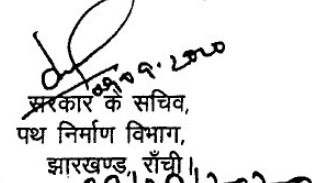 09.09.2020
सरकार के सचिव,
पथ निर्माण विभाग,
झारखण्ड, राँची।